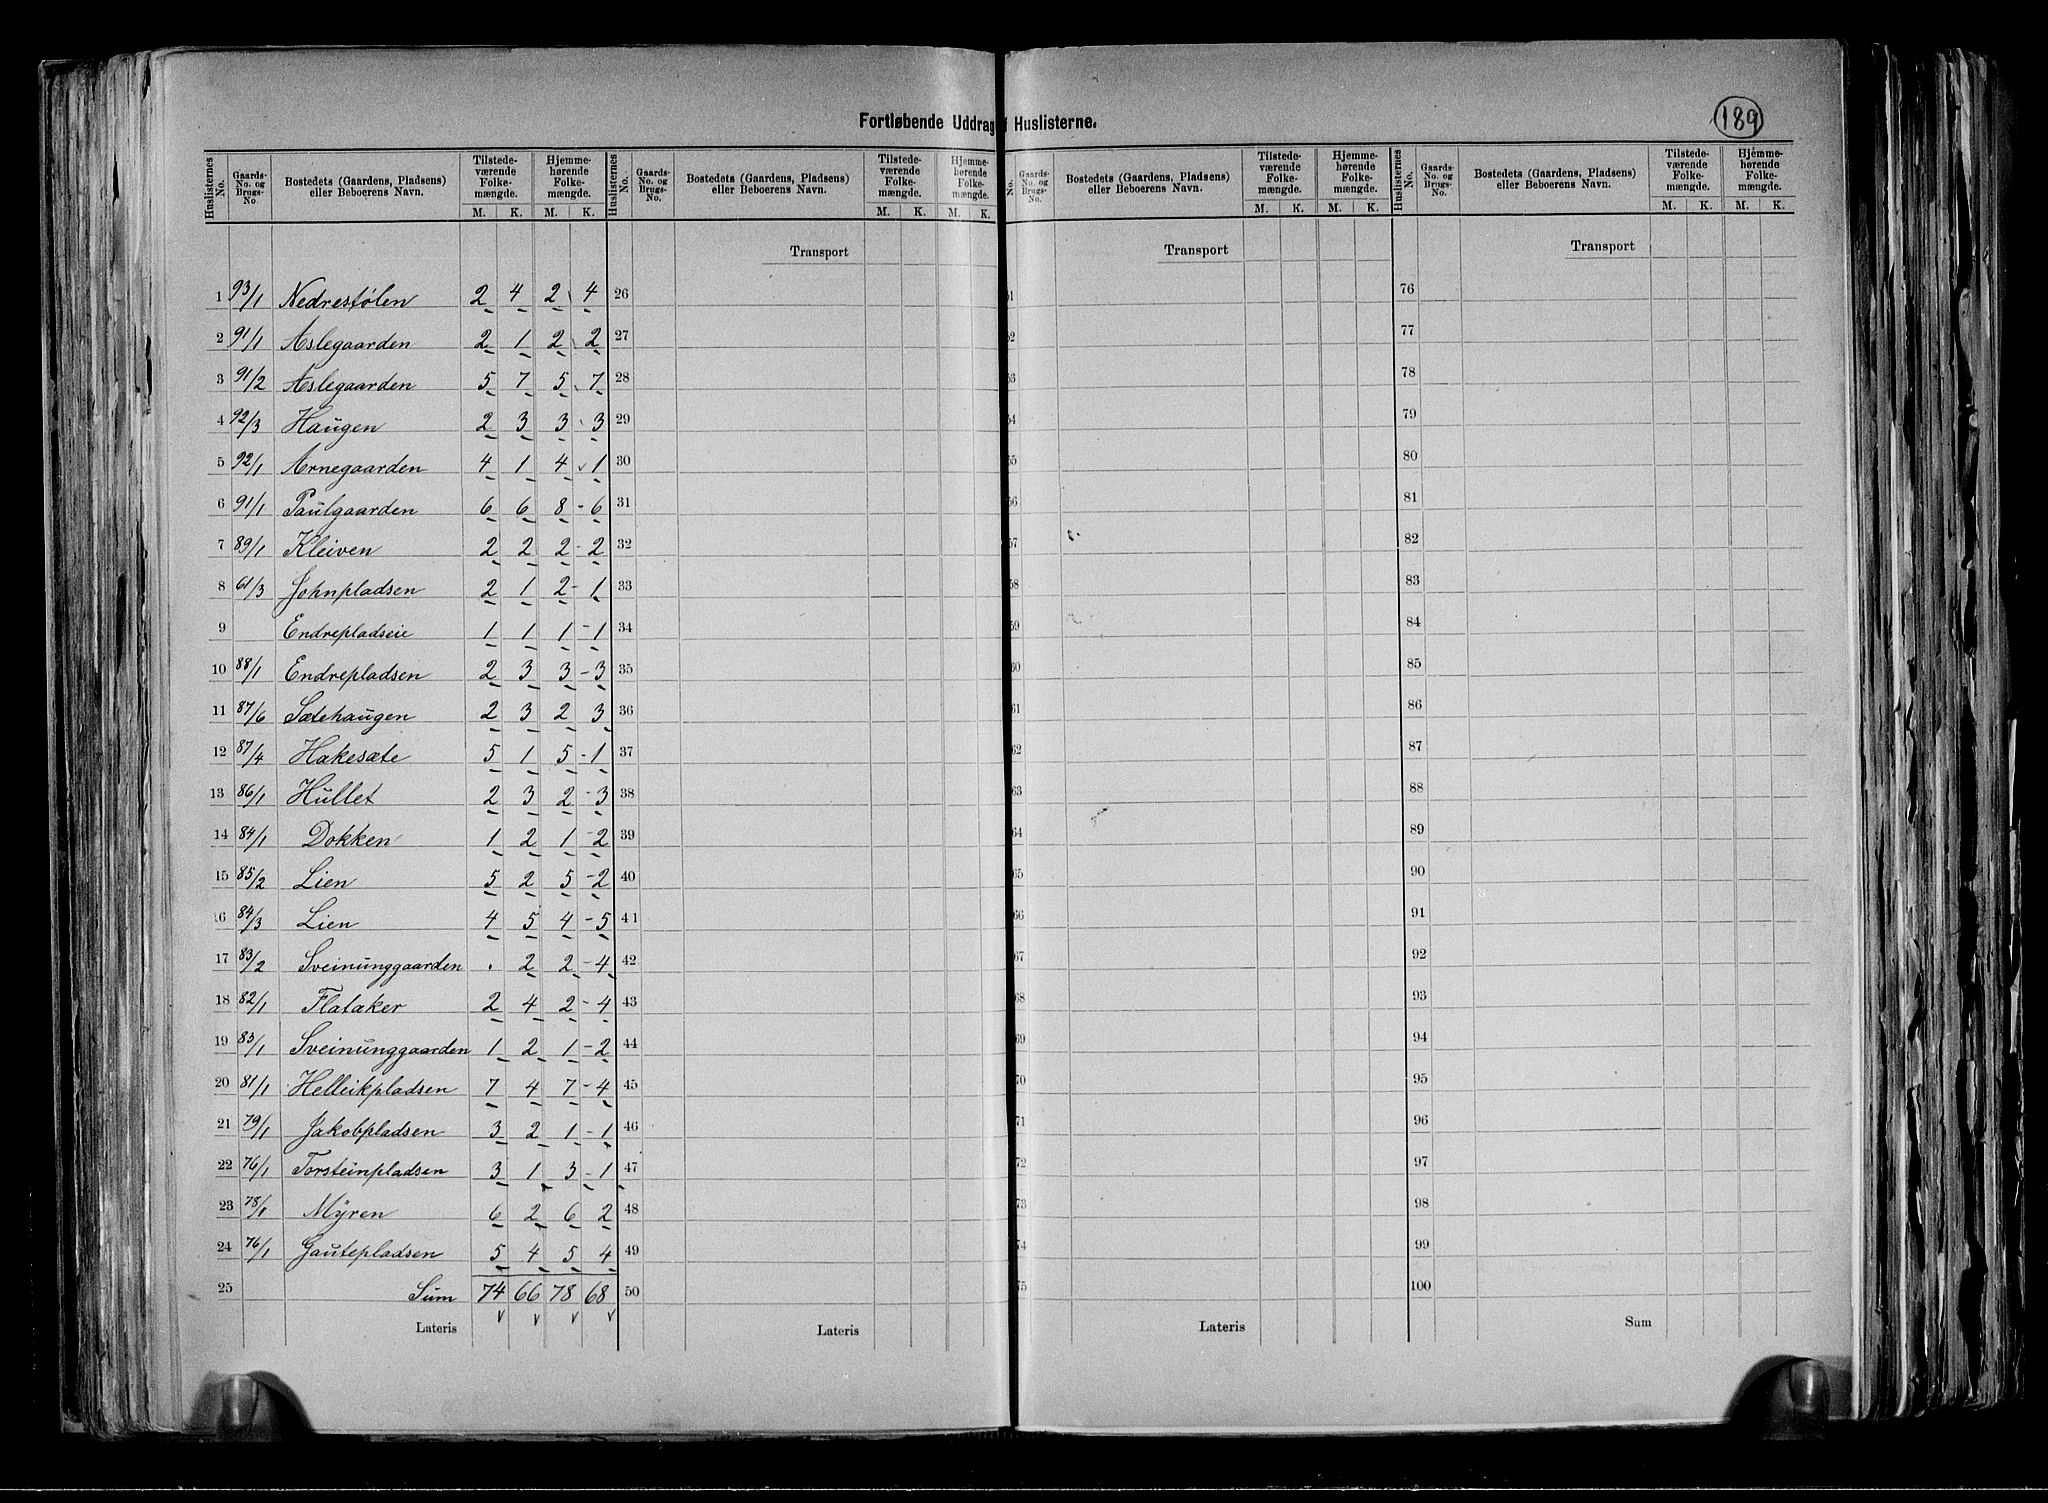 Fortløbende Uddrag f Huslisterne.
189
Huslisternes No. Gaards-No. og Brugs-No. Bostedets (Gaardens, Pladsens) eller Beboerens Navn. Tilstedeværende Folkemængde. M. K. Hjemmehørende Folkemængde. M. K.
Huslisternes No. Gaards-No. og Brugs-No. Bostedets (Gaardens, Pladsens) eller Beboerens Navn. Tilstedeværende Folkemængde. M. K. Hjemmehørende Folkemængde. M. K.
No. Gaards-No. og Brugs-No. Bostedets (Gaardens, Pladsens) eller Beboerens Navn. Tilstedeværende Folkemængde. M. K. Hjemmehørende Folkemængde. M. K.
Huslisternes No. Gaards-No. og Brugs-No. Bostedets (Gaardens, Pladsens) eller Beboerens Navn. Tilstedeværende Folkemængde. M. K. Hjemmehørende Folkemængde. M. K.
Transport Transport Transport
1 93/1 Nedrestølen 2 4 2 4 26 51 76
2 91/1 Aslegaarden 2 1 2 2 27 52 77
3 91/2 Aslegaarden 5 7 5 7 28 53 78
4 92/3 Haugen 2 3 3 3 29 54 79
5 92/1 Arnegaarden 4 1 4 1 30 55 80
6 91/1 Paulgaarden 6 6 8 - 6 31 56 81
7 89/1 Kleiven 2 2 2 - 2 32 57 82
8 61/3 Johnpladsen 2 1 2 - 1 33 58 83
9 Endrepladseie 1 1 1 - 1 34 59 84
10 88/1 Endrepladsen 2 3 3 - 3 35 60 85
11 87/6 Sætehaugen 2 3 2 3 36 61 86
12 87/4 Hakesæte 5 1 5 - 1 37 62 87
13 86/1 Hullet 2 3 2 - 3 38 63 88
14 84/1 Dokken 1 2 1 - 2 39 64 89
15 85/2 Lien 5 2 5 - 2 40 65 90
16 84/3 Lien 4 5 4 - 5 41 66 91
17 83/2 Sveinunggaarden . 2 2 - 4 42 67 92
18 82/1 Flataker 2 4 2 - 4 43 68 93
19 83/1 Sveinunggaarden 1 2 1 - 2 44 69 94
20 81/1 Helleikpladsen 7 4 7 - 4 45 70 95
21 79/1 Jakobpladsen 3 2 1 - 1 46 71 96
22 76/1 Torsteinpladsen 3 1 3 - 1 47 72 97
23 78/1 Myren 6 2 6 2 48 73 98
24 76/1 Gautepladsen 5 4 5 4 49 74 99
25 Sum 74 66 78 68 50 75 100
Lateris Lateris Lateris Sum